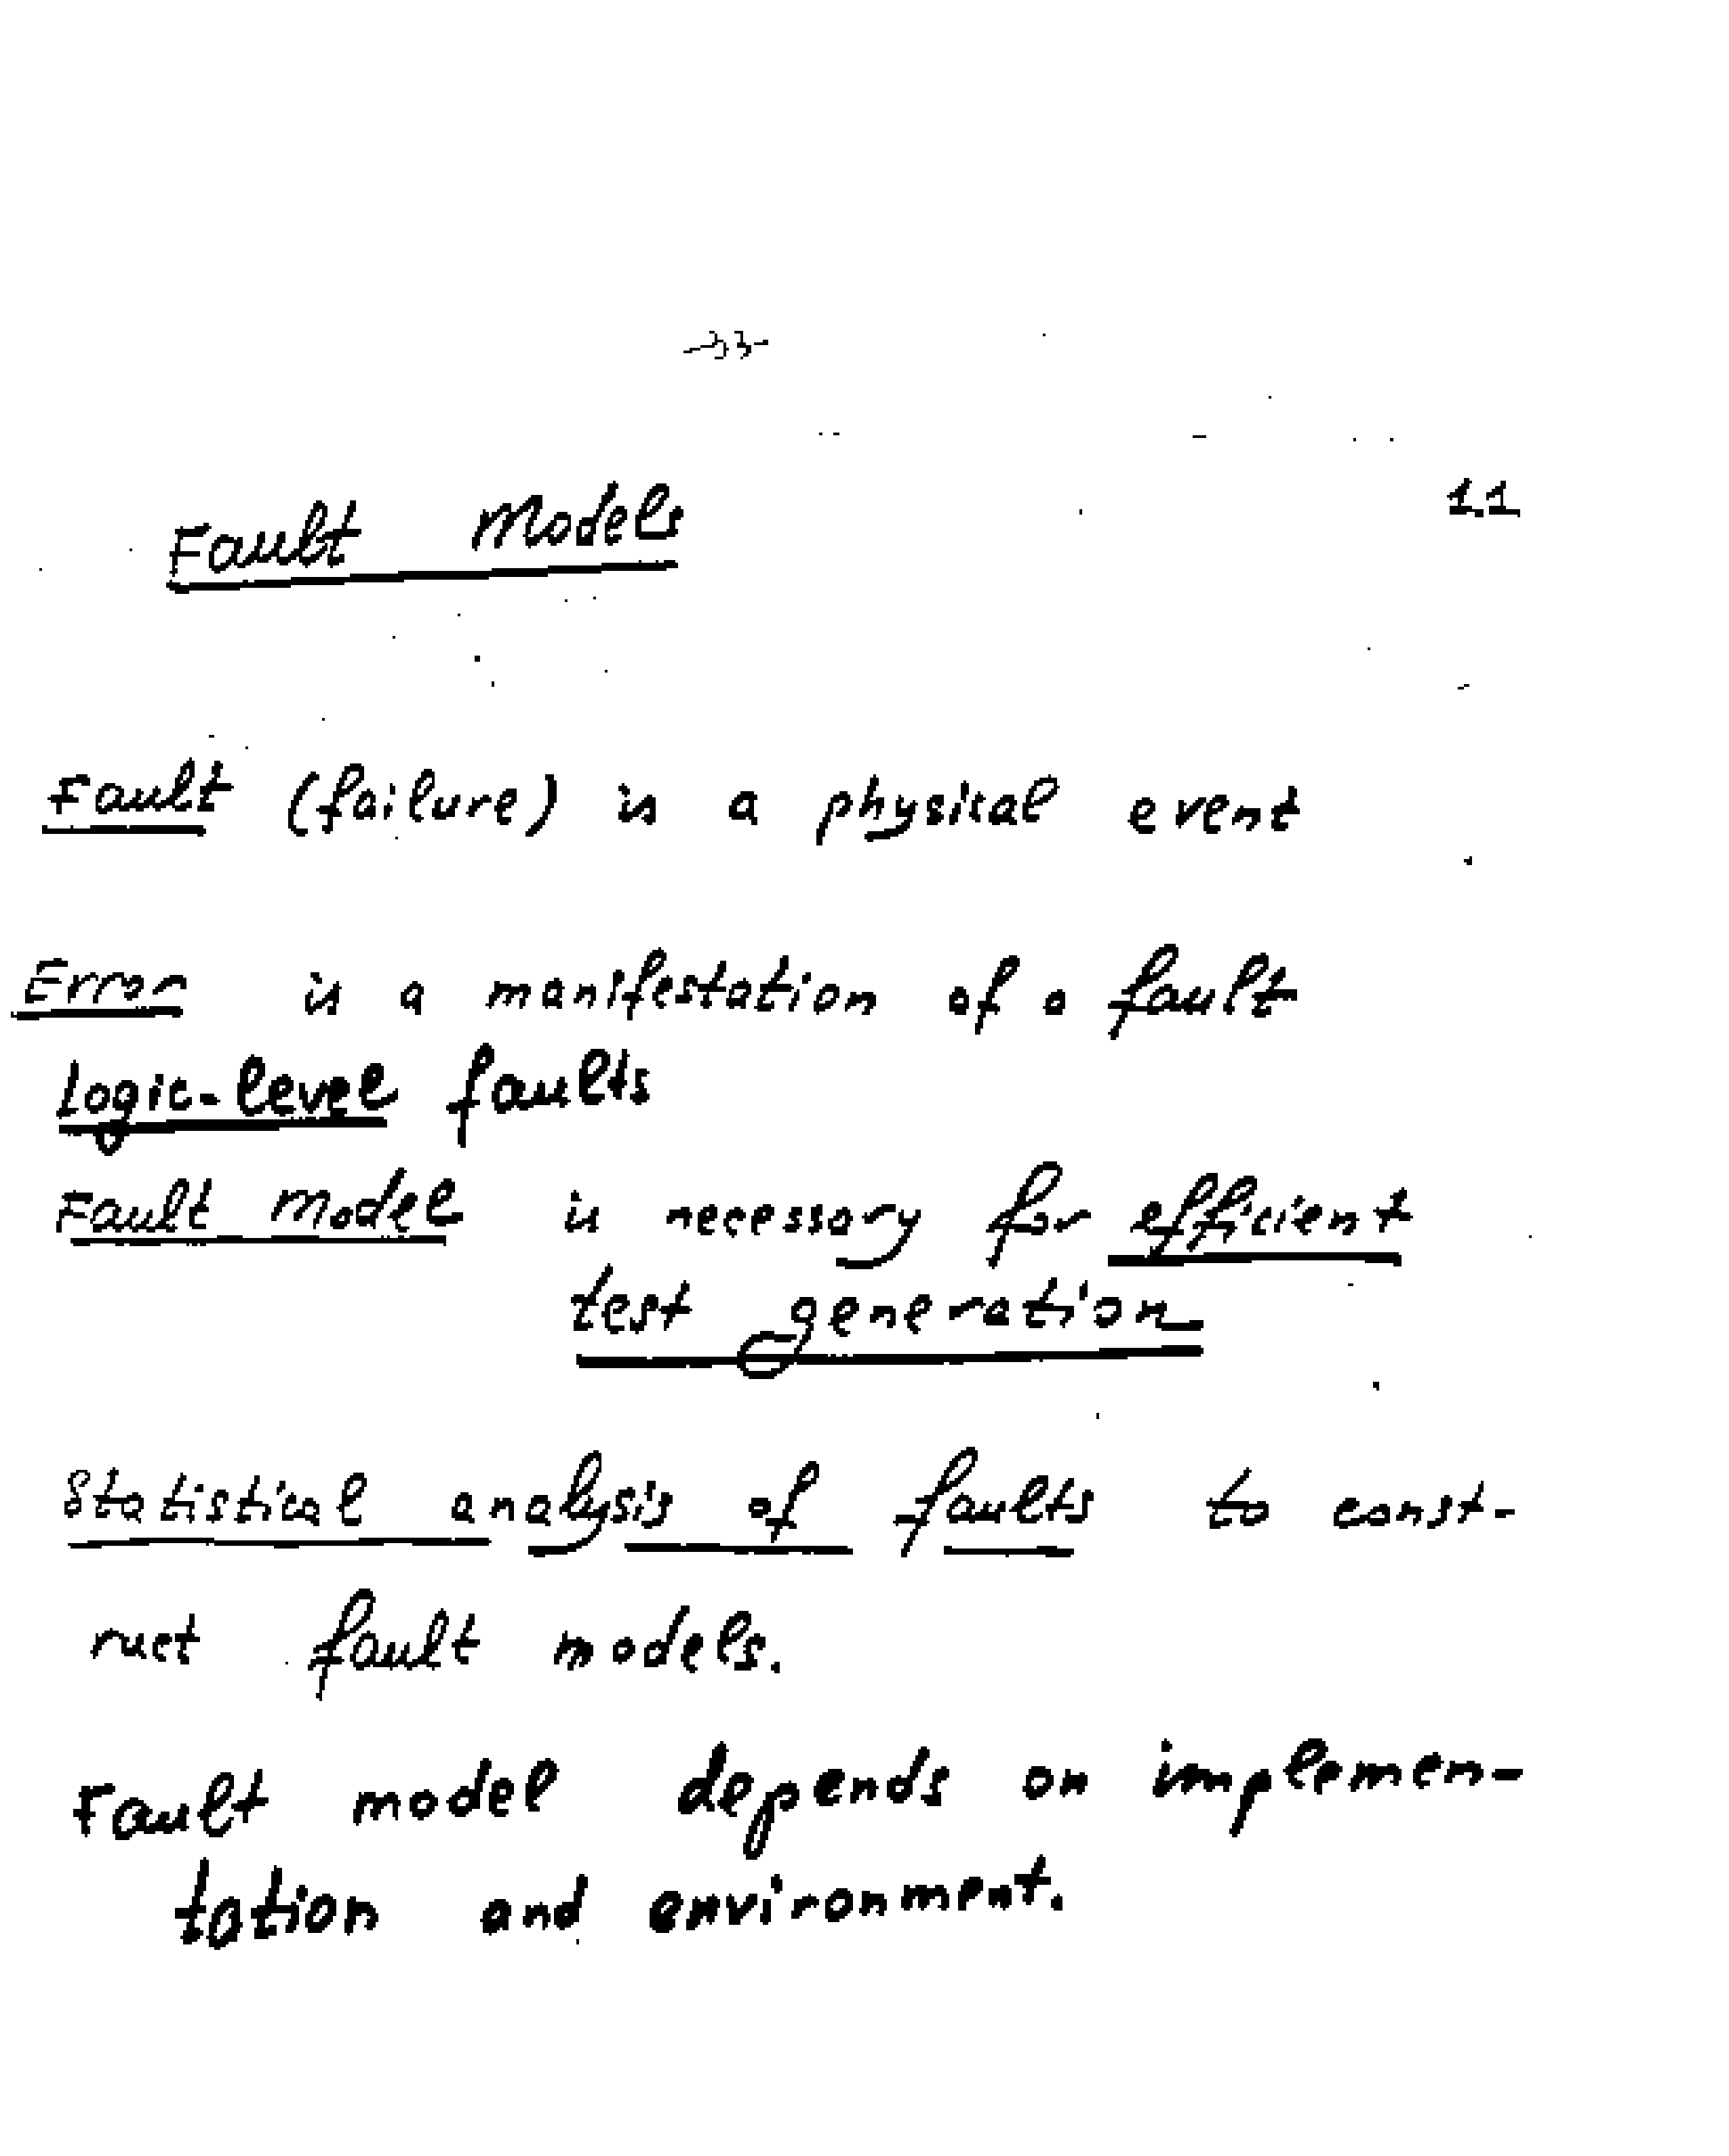 -33-
1.1
Fault Models
Fault (failure) is a physical event
Error is a manifestation of a fault
Logic-level faults
Fault Model is necessary for efficient
test generation
Statistical analysis of faults to const-
ruct fault models.
Fault model depends on implemen-
tation and environment.